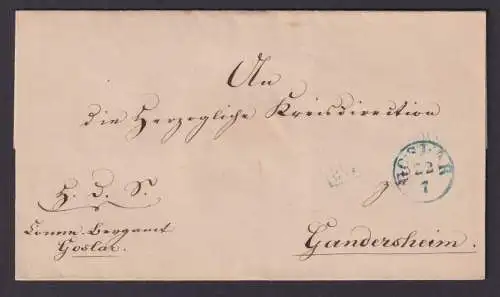 An
die Herzogliche Kreisdirection
GOSLAR
22
7
H. D. S.
zu
Comm. Bergamt
Goslar.
Gandersheim.